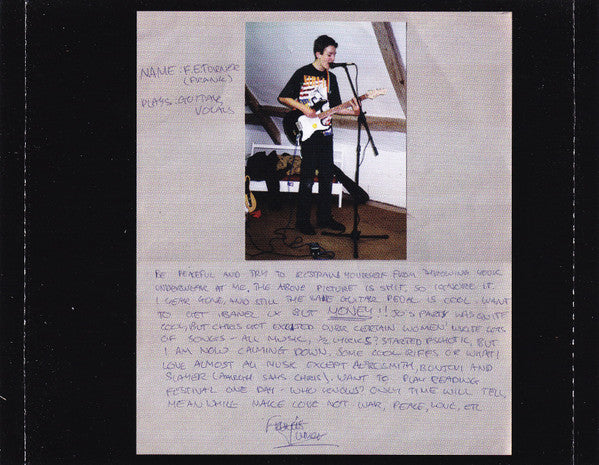 NAME : F.E.TURNER
(FRANK)
PLAYS : GUITAR
VOCALS
BE FEARFUL AND TRY TO RESTRAIN YOURSELF FROM THROWING YOUR
UNDERWEAR AT ME, THE ABOVE PICTURE IS SHIT, SO IGNORE IT.
GEAR GONE, AND STILL THE SAME GUITAR PEDAL IS COOL. WANT
TO GET IBANEZ BUT MONEY!! JO'S PARTY WAS QUITE
COOL, BUT CHRIS GOT EXCITED OVER CERTAIN WOMEN. WRITE LOTS
OF SONGS - ALL MUSIC, ½ LYRICS? STARTED PSHOTIC, BUT
I AM NOW CALMING DOWN. SOME COOL RIFFS OR WHAT!
LOVE ALMOST ALL MUSIC EXCEPT AEROSMITH, BONJOVI AND
SLAYER (AARGH SAYS CHRIS). WANT TO PLAY READING
FESTIVAL ONE DAY - WHO KNOWS? ONLY TIME WILL TELL,
MEANWHILE MAKE LOVE NOT WAR, PEACE, LOVE, ETC
Francis
Turner